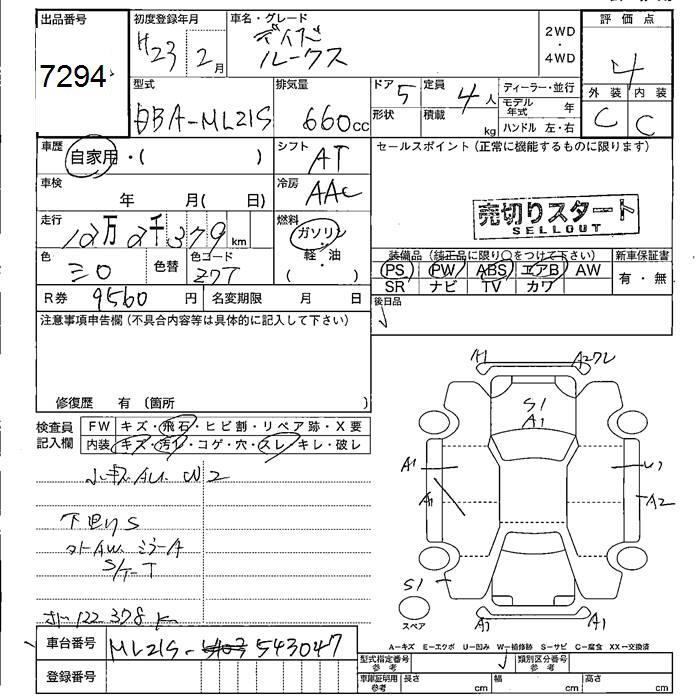 出品番号 初度登録年月 車名・グレード 評価点
7294 H23 2月 ルークス 2WD・4WD 4
型式 排気量 ドア 5 定員 4人 ディーラー・並行 外装 内装
DBA-ML21S 660cc 形状 積載 kg モデル年式 年 C C
ハンドル 左・右
車歴 自家用・( ) シフト AT セールスポイント (正常に機能するものに限ります)
車検 年 月( 日) 冷房 AAC
売切りスタート
SELLOUT
走行 12万2千379km 燃料 ガソリン 軽・油 ( )
色 シロ 色替 色コード Z7T
装備品 (純正品に限り○をつけて下さい) 新車保証書
PS PW ABS エアB AW 有・無
SR ナビ TV カワ
R券 9560円 名変期限 月 日 後日品
注意事項申告欄 (不具合内容等は具体的に記入して下さい)
修復歴 有 (箇所 )
検査員記入欄 FW キズ・飛石・ヒビ割・リペア跡・X要
内装 キズ・汚レ・コゲ・穴・スレ・キレ・破レ
W2
S
ミラーA
122,378
A1
S1
A1
A1
A1
A2
S1
A1 A1
スペア
A-キズ E-エクボ U-凹み W-補修跡 S-サビ C-腐食 XX-交換済
車台番号 ML21S-543047
登録番号
型式指定番号 参考 類別区分番号 参考
車庫証明用 参考 長さ cm 幅 cm 高さ cm